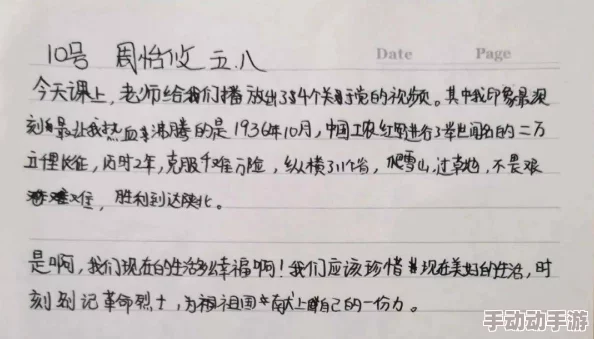 10号 周怡攸 五.八
Date Page
今天课上,老师给我们播放出了4个关于党的视频。其中我印象最深
刻最让我热血沸腾的是1936年10月,中国工农红军进行了举世闻名的二万
五千里长征,历时2年,克服千难万险,纵横了11个省,爬雪山,过草地,不畏艰
难,胜利到达陕北。
是啊,我们现在的生活多么幸福啊!我们应该珍惜现在美好的生活,时
刻别记革命烈士,为祖国献上自己的一份力。
手动动手游